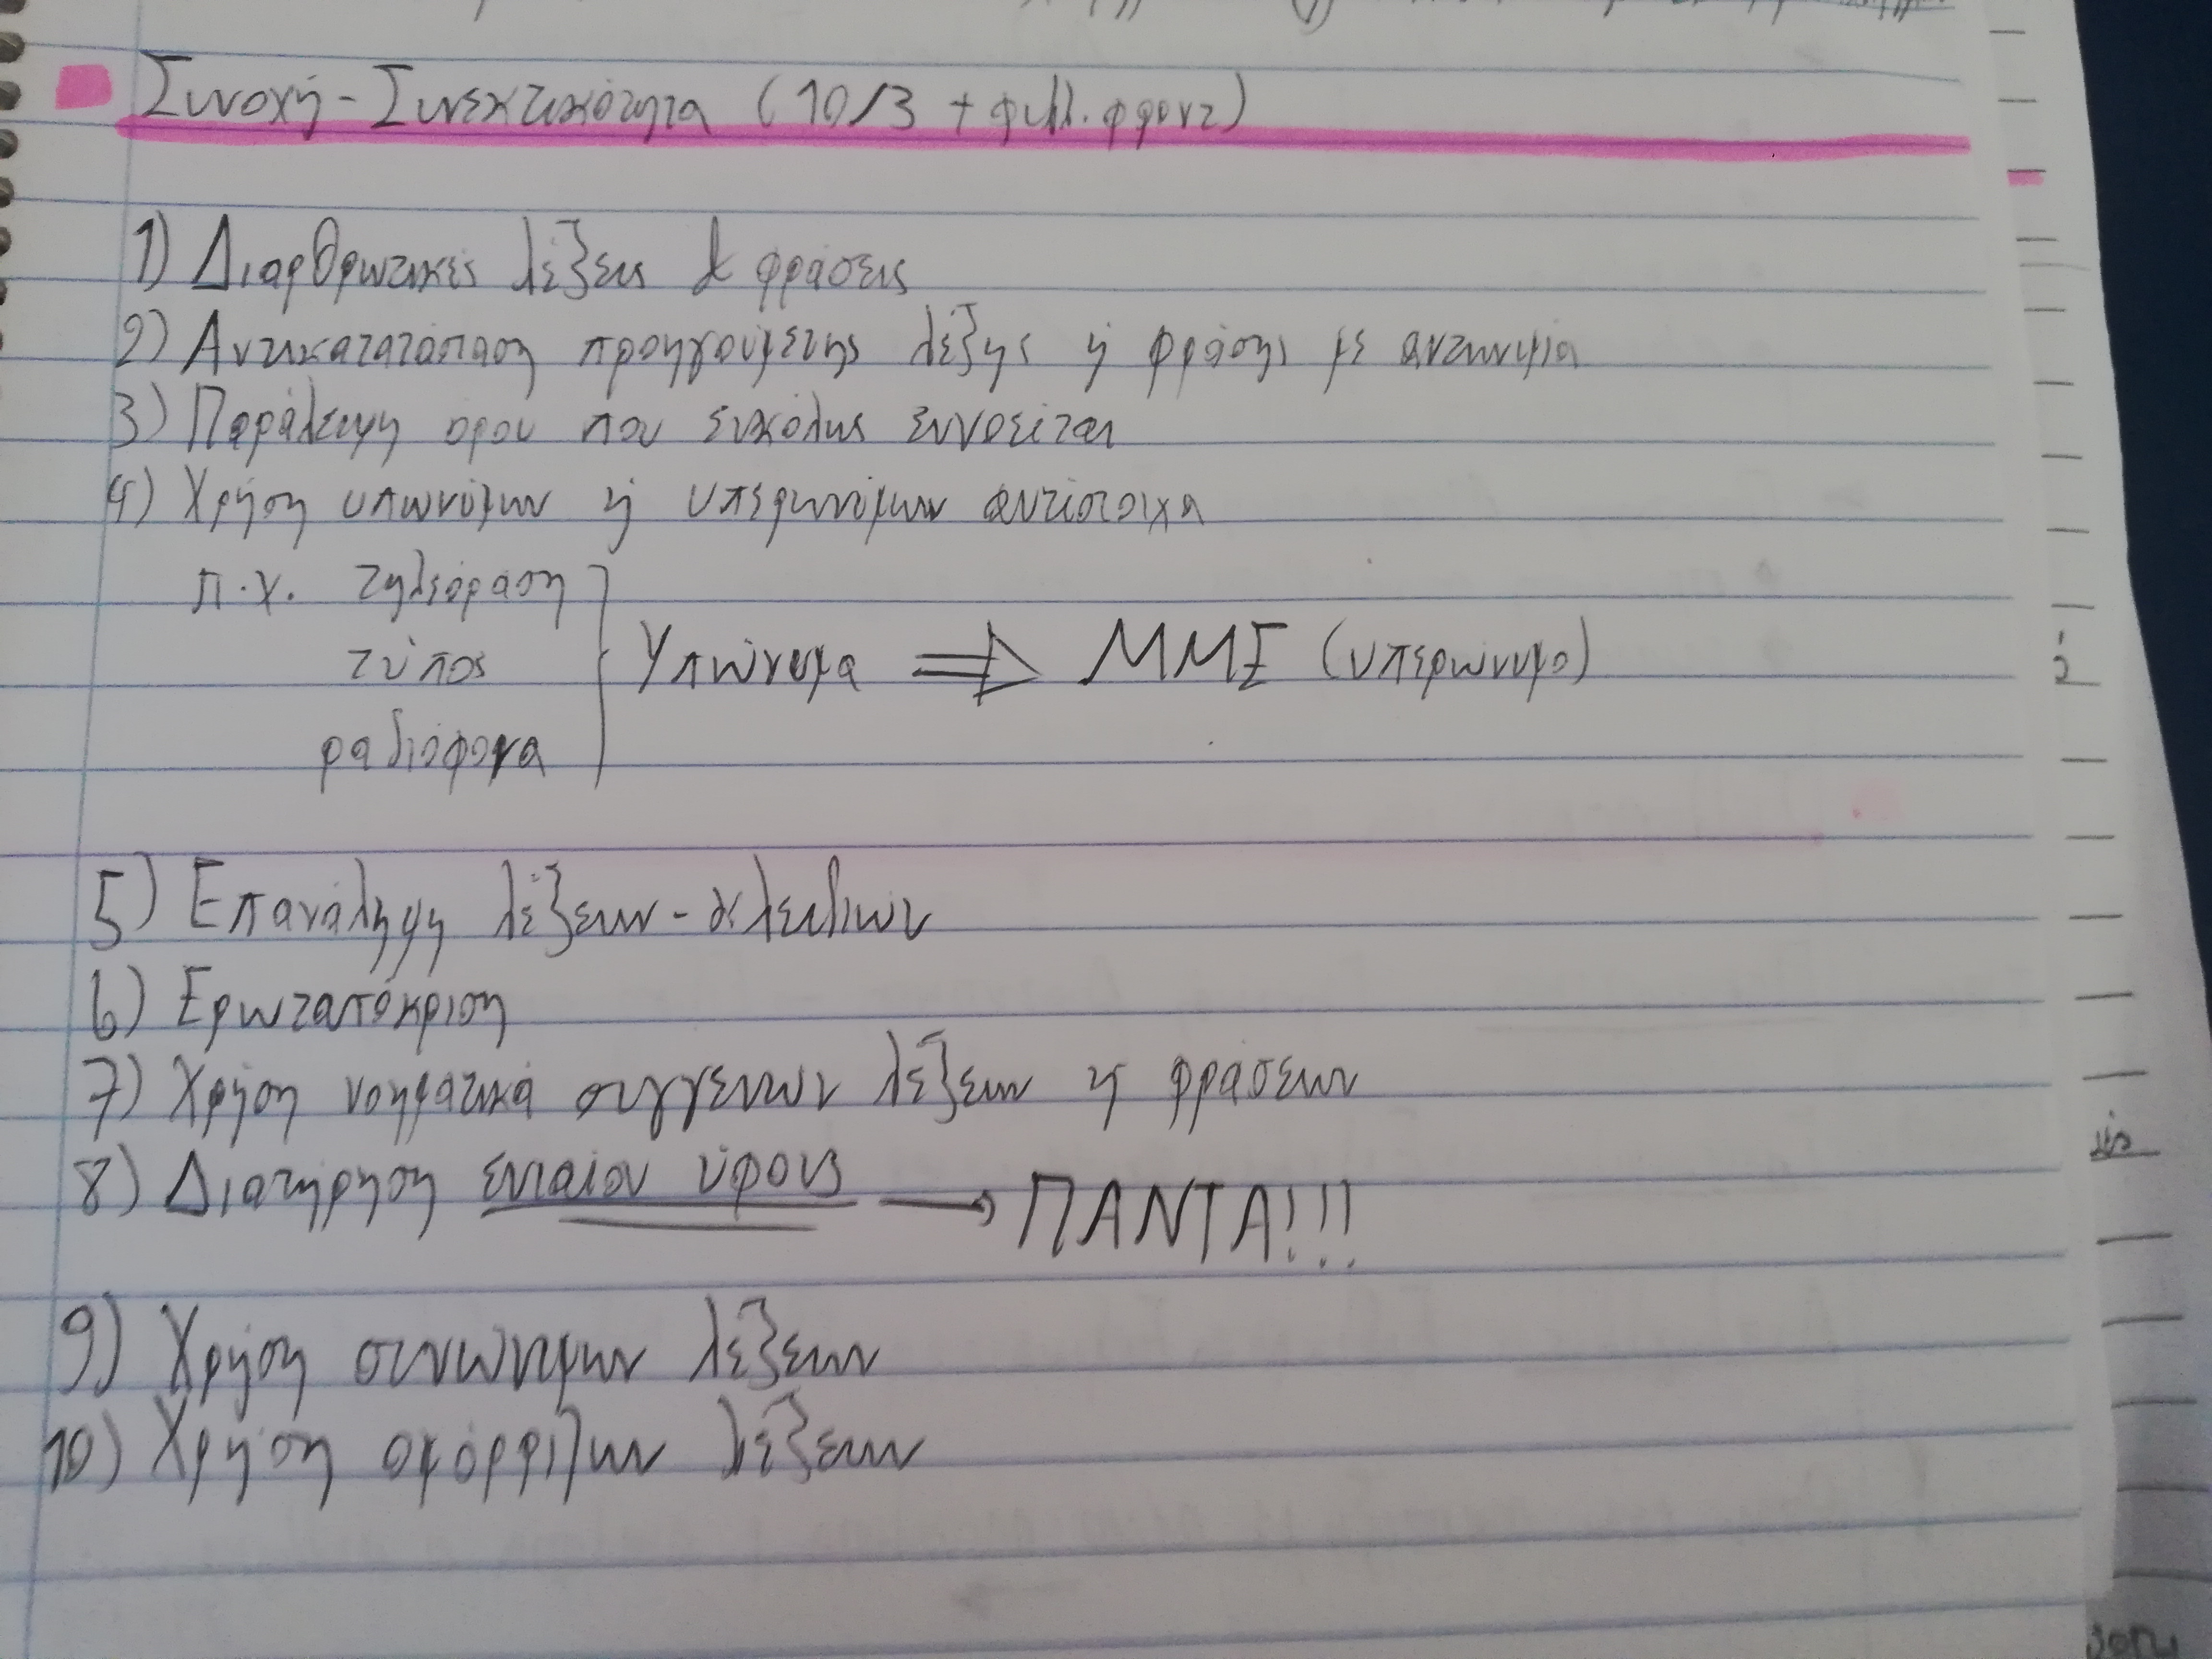 Συνοχή - Συνεκτικότητα (10/3 + φυλλ. φροντ)
1) Διαρθρωτικές λέξεις & φράσεις
2) Αντικατατάσταση προηγούμενης λέξης ή φράσης με αντωνυμία
3) Παράλειψη όρου που ευκόλως εννοείται
4) Χρήση υπωνύμων ή υπερωνύμων αντίστοιχα
π.χ. τηλεόραση
τύπος
ραδιόφονα
Υπώνυμα ⇒ ΜΜΕ (υπερώνυμο)
5) Επανάληψη λέξεων - κλειδιών
6) Ερωταπόκριση
7) Χρήση νοηματικά συγγενών λέξεων ή φράσεων
8) Διατήρηση ενιαίου ύφους → ΠΑΝΤΑ!!!
9) Χρήση συνώνυμων λέξεων
10) Χρήση ομόρριζων λέξεων